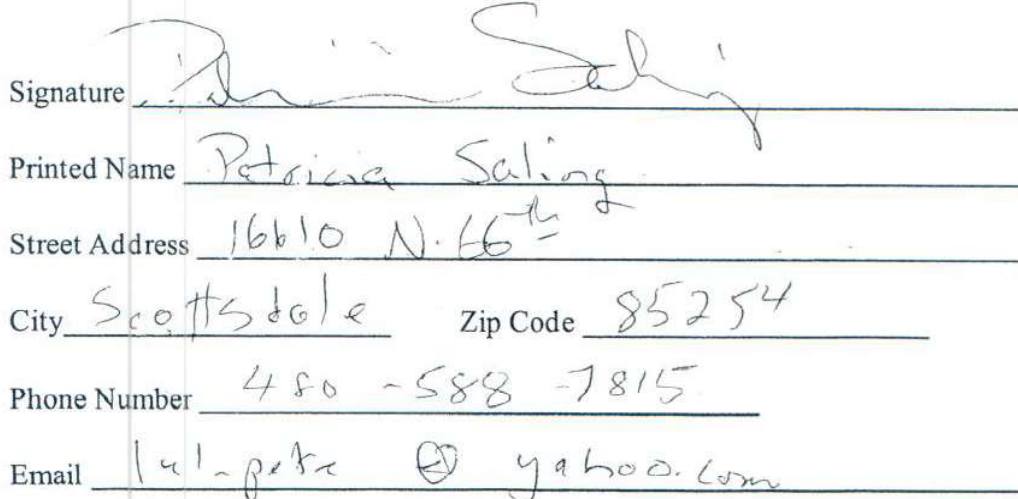 Signature
Printed Name Patricia Saling
Street Address 16610 N. 66th
City Scottsdale Zip Code 85254
Phone Number 480-588-7815
Email @ yahoo.com